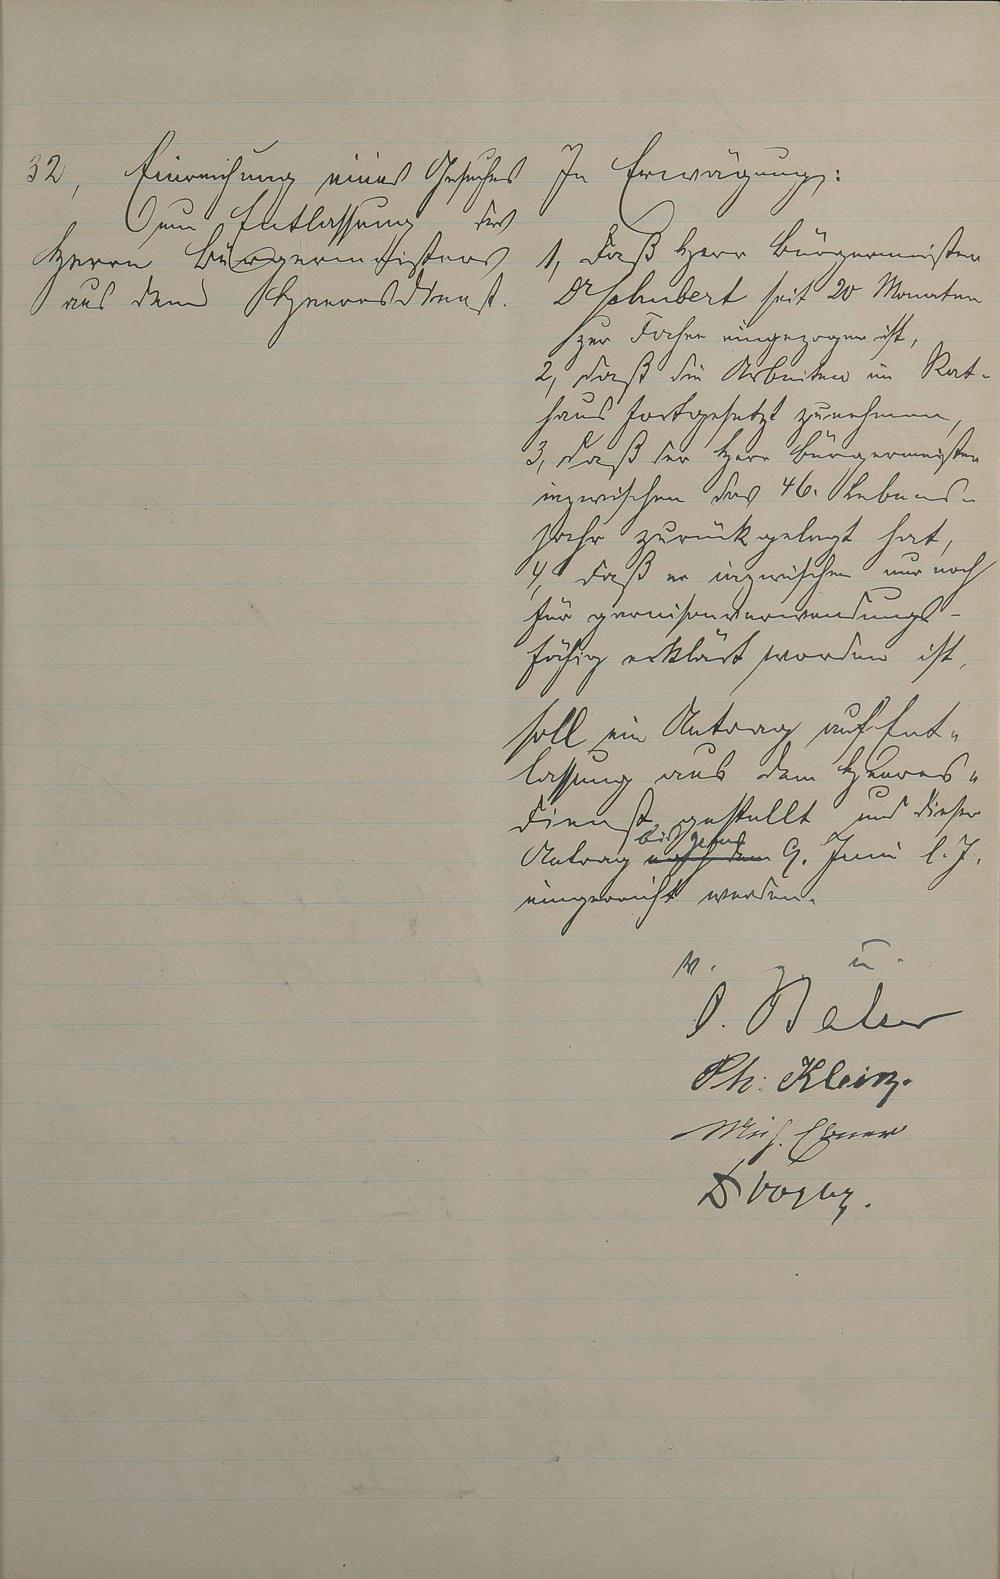 32, Einreichung eines Gesuches
um Entlassung des
Herrn Bürgermeisters
aus dem Heeresdienst.
In Erwägung:
1, daß Herr Bürgermeister
Dr Schubert seit 20 Monaten
zur Fahne eingezogen ist,
2, daß die Arbeiten im Rat-
haus fortgesetzt zunehmen,
3, daß der Herr Bürgermeister
inzwischen das 46. Lebens-
jahr zurückgelegt hat,
4, daß er inzwischen nur noch
für garnisonverwendungs-
fähig erklärt worden ist,
soll ein Antrag auf Ent-
lassung aus dem Heeres-
dienst gestellt und dieser
Antrag 9. Juni l. J.
eingereicht werden.
v. g. u.
Ph. Klein.
Mich. Ebner